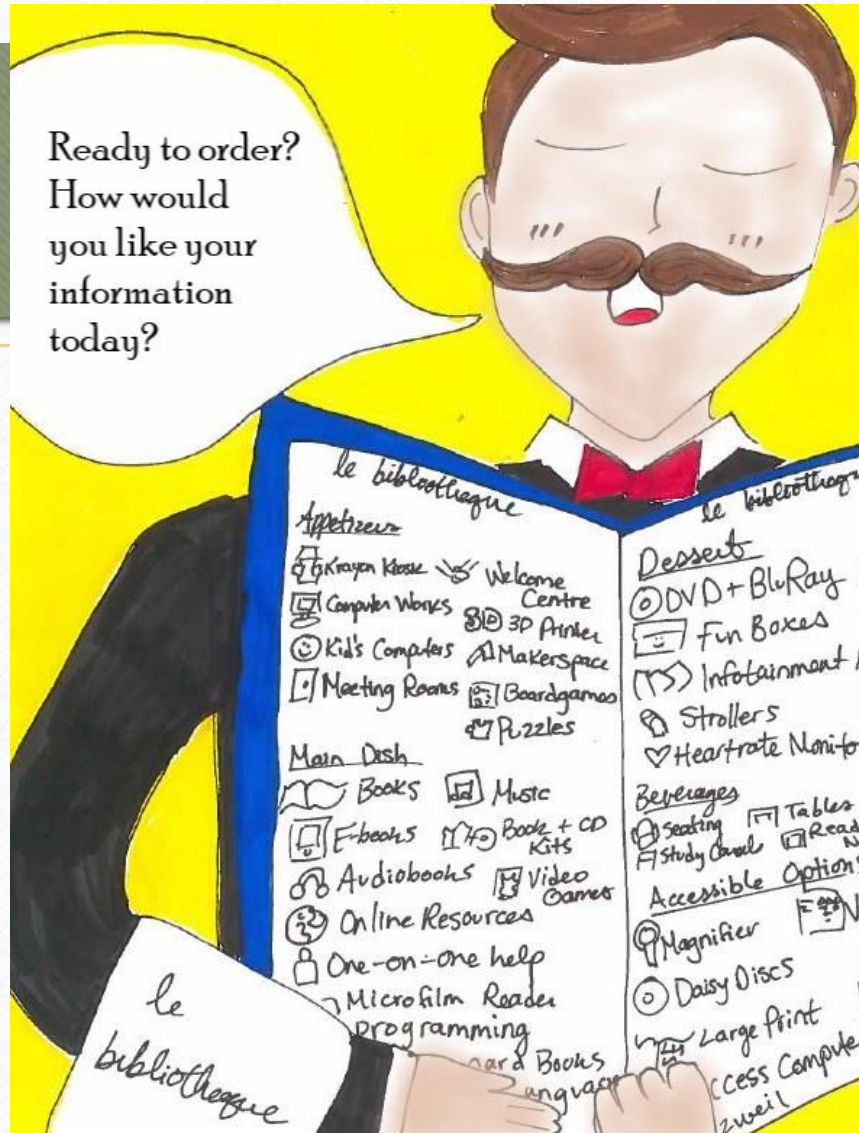 Ready to order?
How would
you like your
information
today?
le bibliotheque
Appetizers
Krayon Kiosk
Computer Works
Kid's Computers
Meeting Rooms
Welcome
Centre
3D Printer
Makerspace
Boardgames
Puzzles
Main Dish
Books
E-books
Audiobooks
Online Resources
One-on-one help
Microfilm Reader
Programming
Music
Book + CD
Kits
Video
Games
Books
le bibliotheq
Dessert
DVD + BluRay
Fun Boxes
Infotainment
Strollers
Heartrate Monito
Beverages
Seating
Study Carrel
Tables
Read
Accessible Option
Magnifier
Daisy Discs
Large Print
ccess Compute
zweil
le
bibliotheque